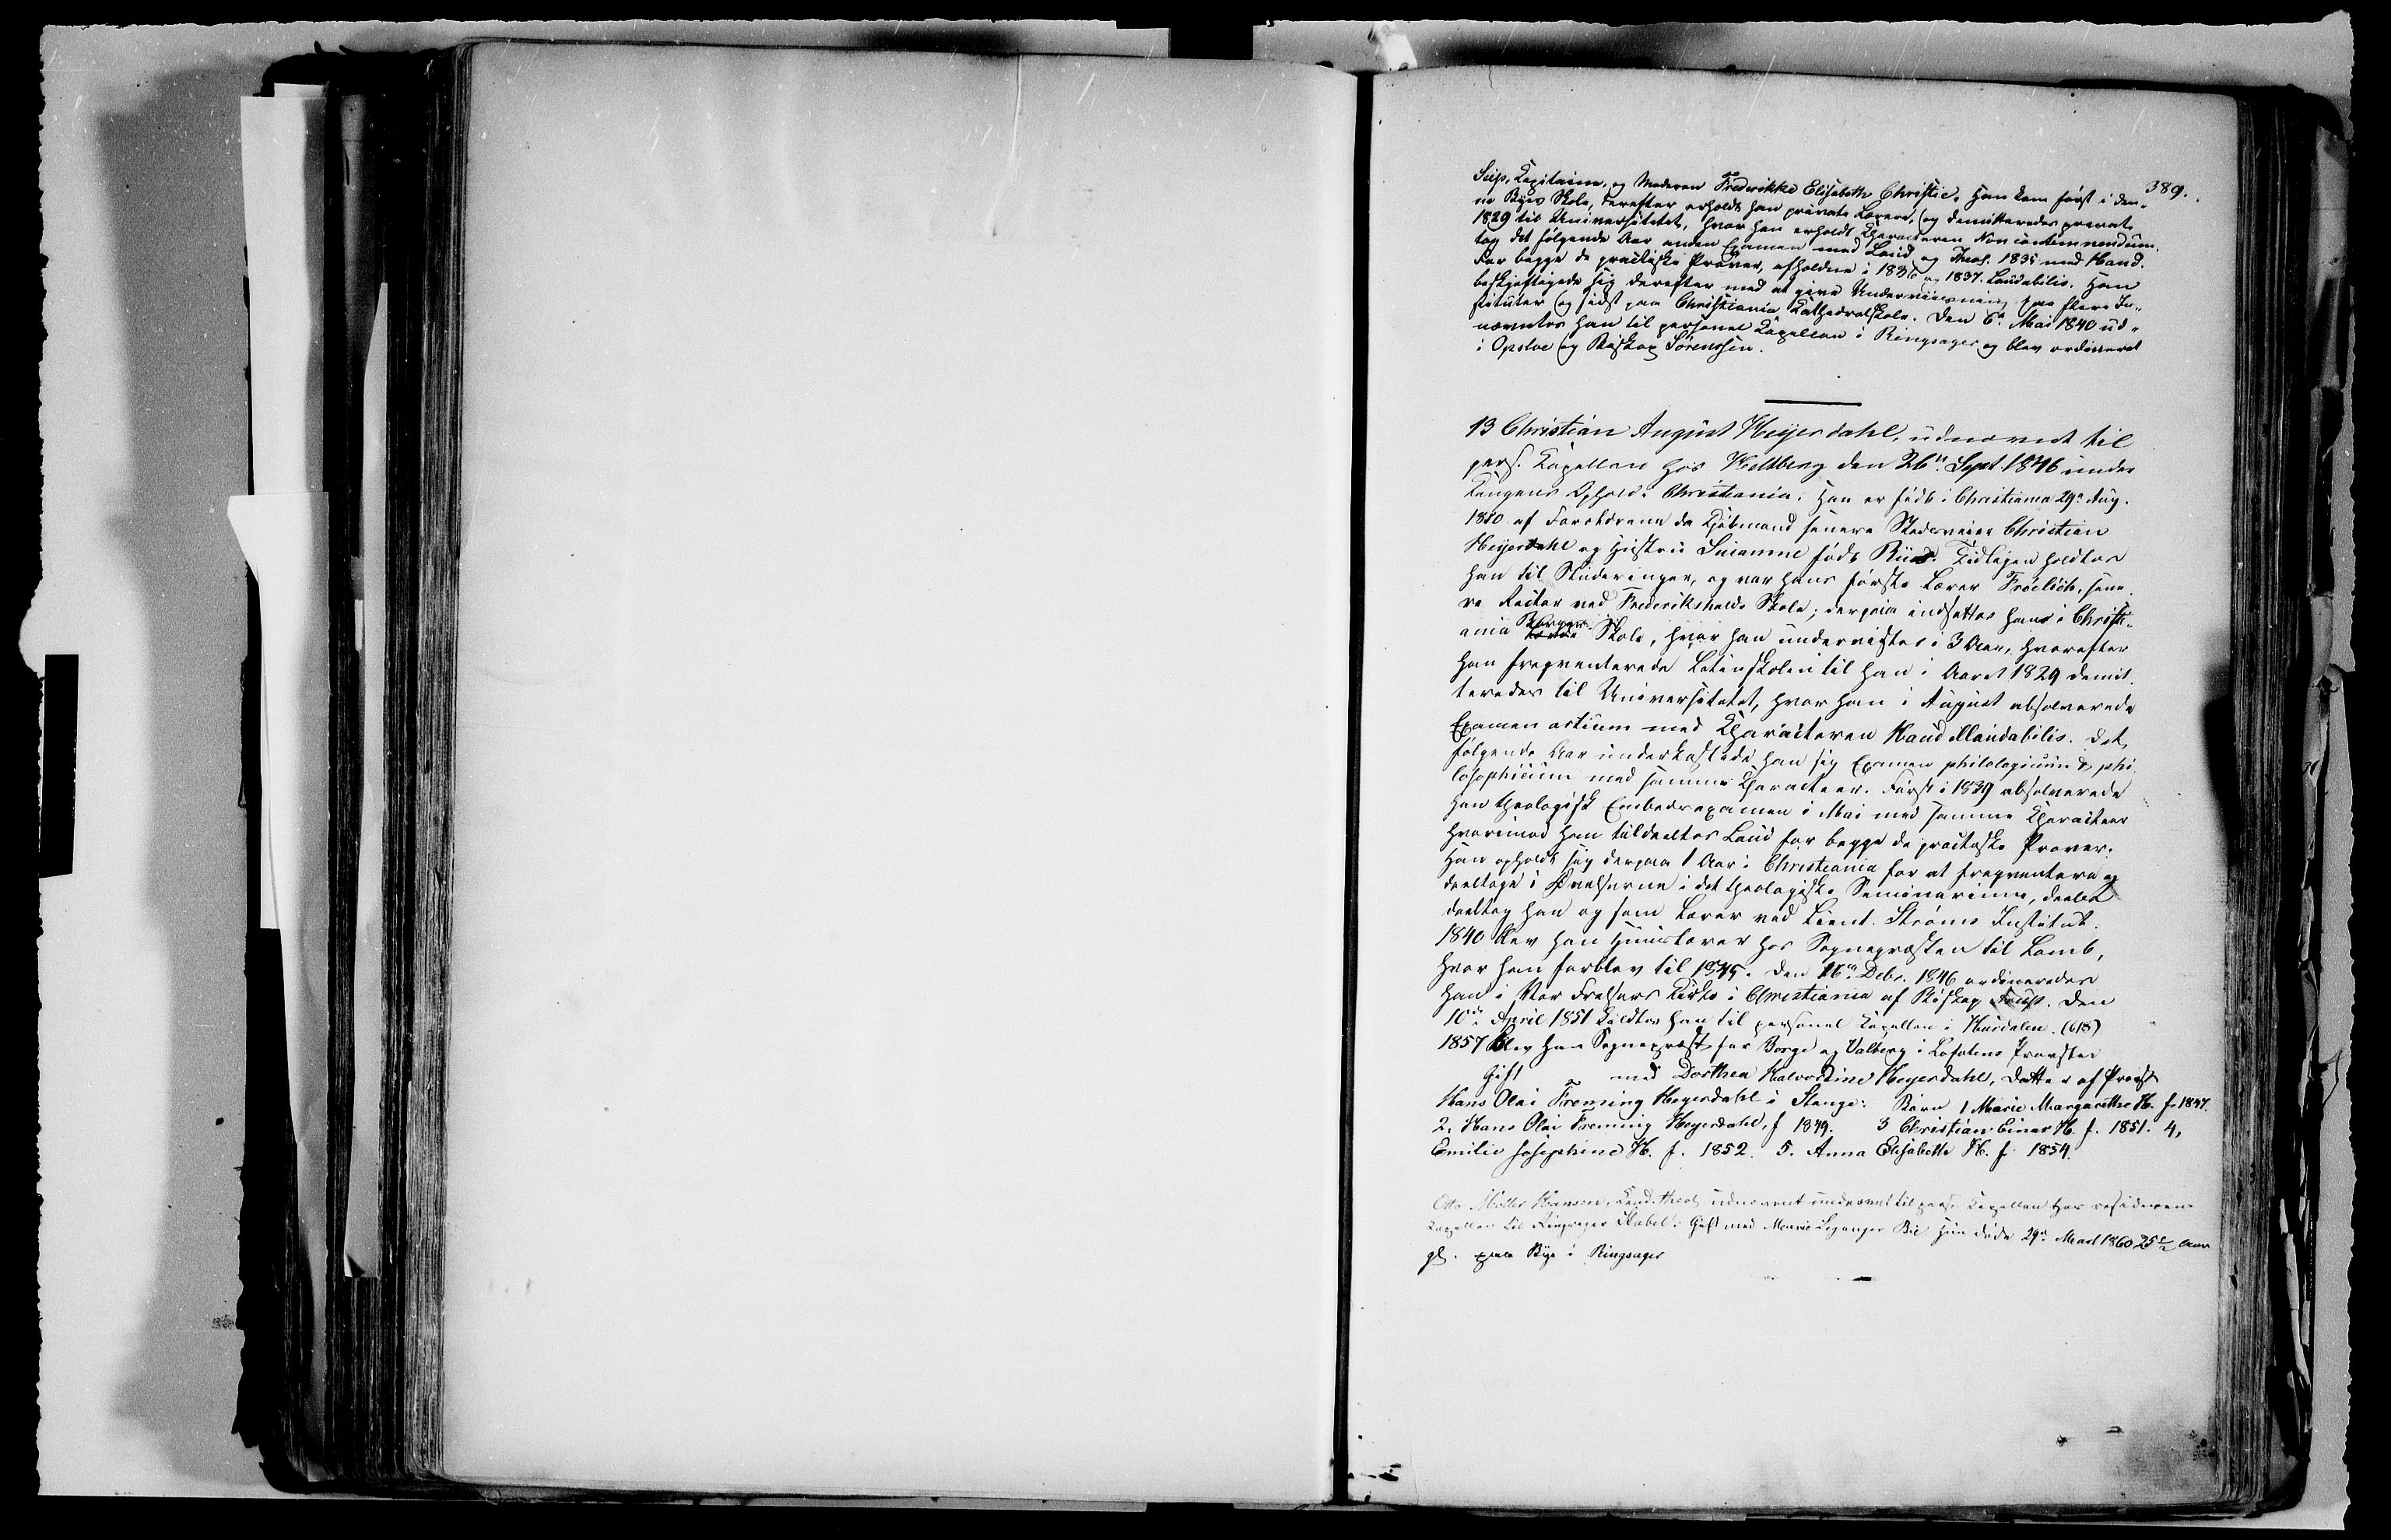 389.
Seip, Kapitain, og Moderen Frederikke Elisabeth Christie. Han kom først i den-
ne Byes Skole, derefter erholdt han private Lærere, og demitteredes privat
1829 til Universitetet, hvor han erholdt Characteren Non contemnendum.
tog det følgende Aar anden Examen med Laud og Theol. 1835 med Haud.
For begge de practiske Prøver, afholdne i 1836 og 1837. Laudabilis. Han
beskjeftigede sig derefter med at give Underviisning paa flere In-
stituter og sidst paa Christiania Kathedralskole. Den 6te Mai 1840 ud-
nævntes han til personel Kapellan i Ringsager og blev ordineret
i Opsloe af Biskop Sørenssen.
13 Christian August Heyerdahl, udnævnt til
pers. Kapellan hos Heltberg den 26de Sept. 1846 under
Kongens Ophold i Christiania. Han er født i Christiania 29de Aug.
1810 af Forældrene da Kjøbmand senere Christian
Heyerdahl og Hustru Susanne født Tidligen holdtes
han til Studeringer, og var hans første Lærer Frøelich, sene-
re Rector ved Frederikshalds Skole; derpaa indsattes han i Christi-
ania Borger Skole, hvor han undervistes i 3 Aar, hvorefter
han freqventerede Latinskolen til han i Aaret 1829 demit-
teredes til Universitetet, hvor han i August absolverede
Examen artium med Characteren Haud illaudabilis. Det
følgende Aar underkastede han sig Examen philologicum & phi-
losophicum med samme Characteer. Først i 1839 absolverede
han theologisk Embedsexamen i Mai med samme Characteer
hvorimod han tildeeltes Laud for begge de practiske Prøver.
Han opholdt sig derpaa 1 Aar i Christiania for at freqventere og
deeltage i Øvelserne i det theologiske Seminarium,
deeltog han og som Lærer ved Lieut. Strøms Institut.
1840 blev han Huuslærer hos Sognepræsten til Lomb,
hvor han forblev til 1845. Den 16de Debr. 1846 ordineredes
han i Vor Frelsers Kirke i Christiania af Biskop Den
10de April 1851 kaldtes han til personel Kapellan i Hurdalen. (618)
1857 blev han Sognepræst for Borge og Valberg i Lofotens Provsti
Gift med Dorthea Halvordine Heyerdahl, Datter af Provst
Hans Olai Freming Heyerdahl i Stange: Børn 1 Marie Margarethe H. f. 1847.
2, Hans Olai Fremming Heyerdahl, f 1849. 3 Christian Einar H. f. 1851. 4,
Emilie Josephine H. f. 1852. 5. Anna Elisabeth H. f 1854.
Otto Møller Hansen, Cand. theol. udnævnt til pers. Kapellan hos residerende
Kapellan til Ringsager Stabel. Gift med Marie Bie Hun døde 29de Mart 1860 25 1/2 Aar
gl. paa Bye i Ringsager